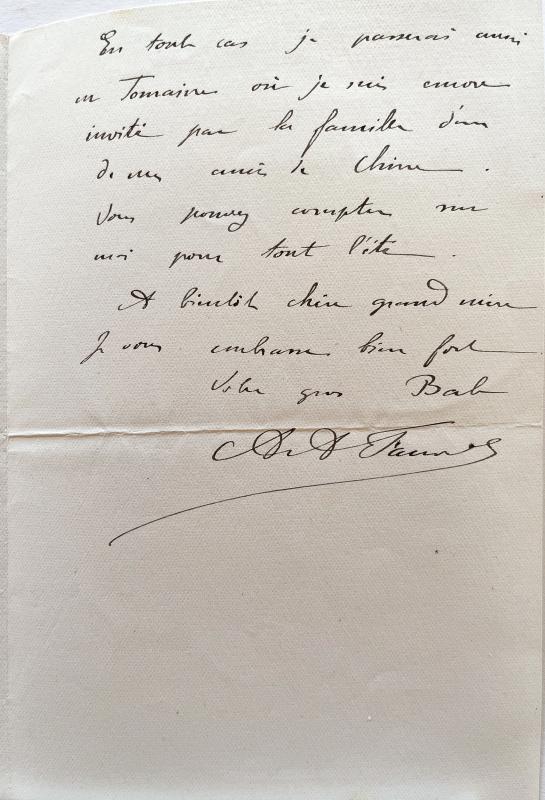 En tout cas je passerai aussi
en Tomaine où je suis encore
invité par la famille d'un
de mes amis de Chine.
Vous pouvez compter sur
moi pour tout l'été.
A bientôt chère grand mère
Je vous embrasse bien fort
Votre gros Bab